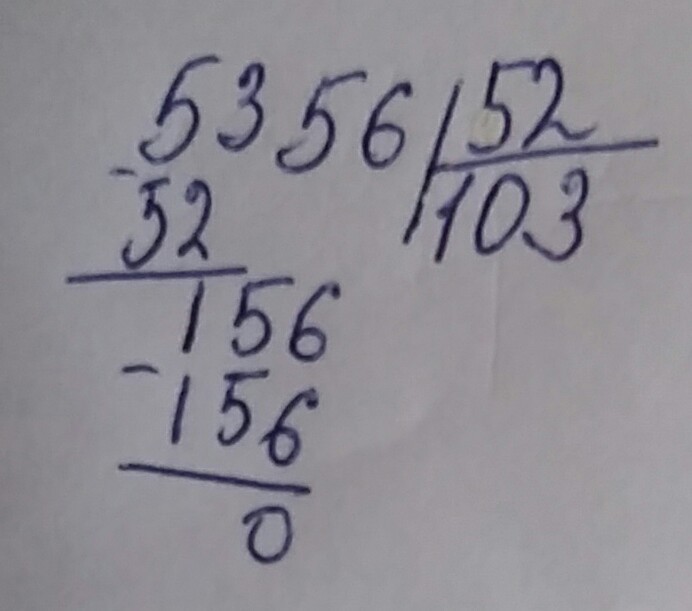 5356 52
- 52 103
156
- 156
0